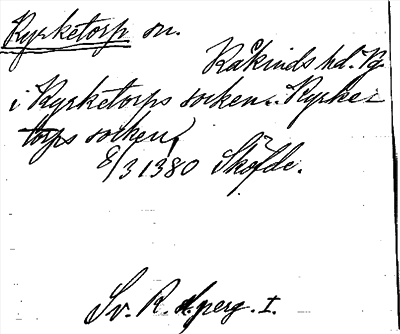 Kyrketorp sn.
Kåkinds hd. Vg.
i Kyrketorps socken. Kyrke-
torps socken,
8/3 1380 Sköfde.
Sv. R. A. perg. I.